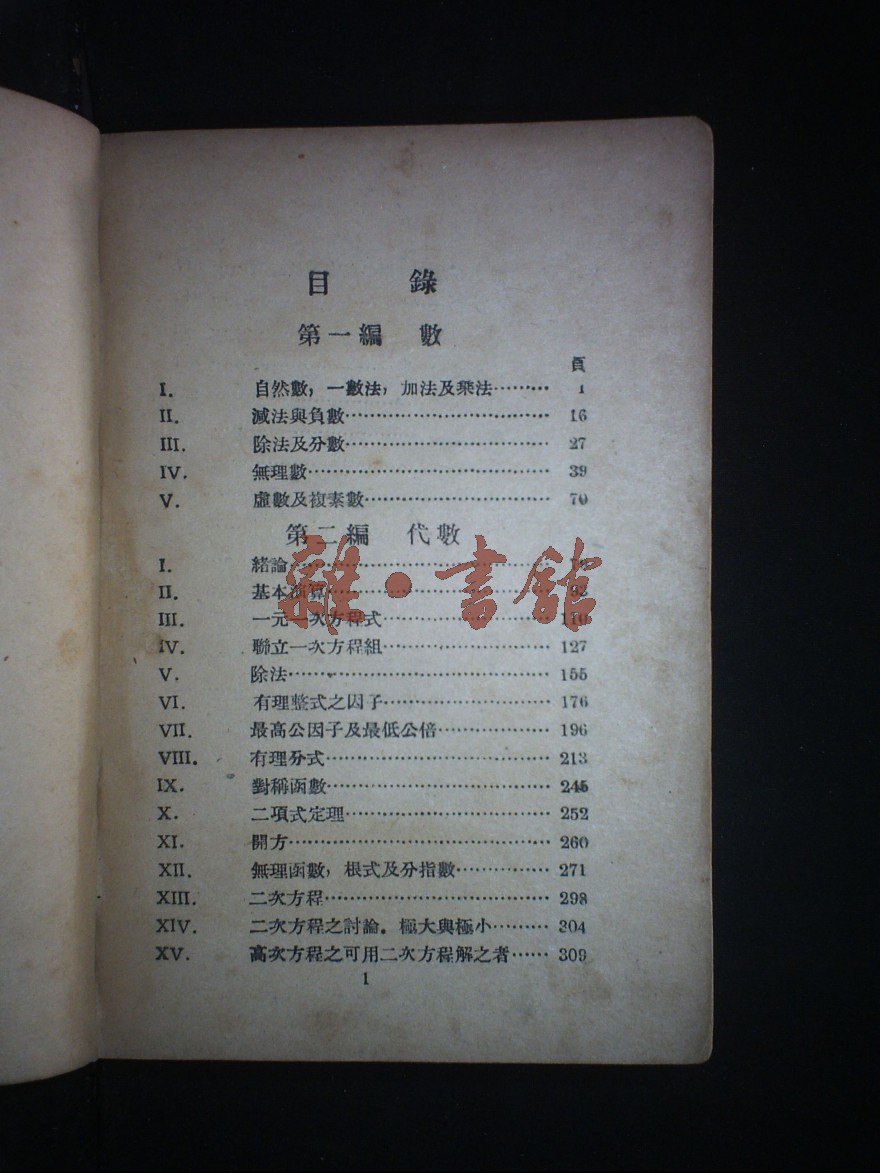 目 錄
第一編 數
頁
I. 自然數，一數法，加法及乘法……… 1
II. 減法與負數…………………………… 16
III. 除法及分數…………………………… 27
IV. 無理數………………………………… 39
V. 虛數及複素數………………………… 70
第二編 代數
I. 緒論
II. 基本演算
III. 一元一次方程式……………………… 110
IV. 聯立一次方程組……………………… 127
V. 除法…………………………………… 155
VI. 有理整式之因子……………………… 176
VII. 最高公因子及最低公倍……………… 196
VIII. 有理分式……………………………… 213
IX. 對稱函數……………………………… 245
X. 二項式定理…………………………… 252
XI. 開方…………………………………… 260
XII. 無理函數，根式及分指數…………… 271
XIII. 二次方程……………………………… 298
XIV. 二次方程之討論。極大與極小……… 304
XV. 高次方程之可用二次方程解之者…… 309
1
雜·書館